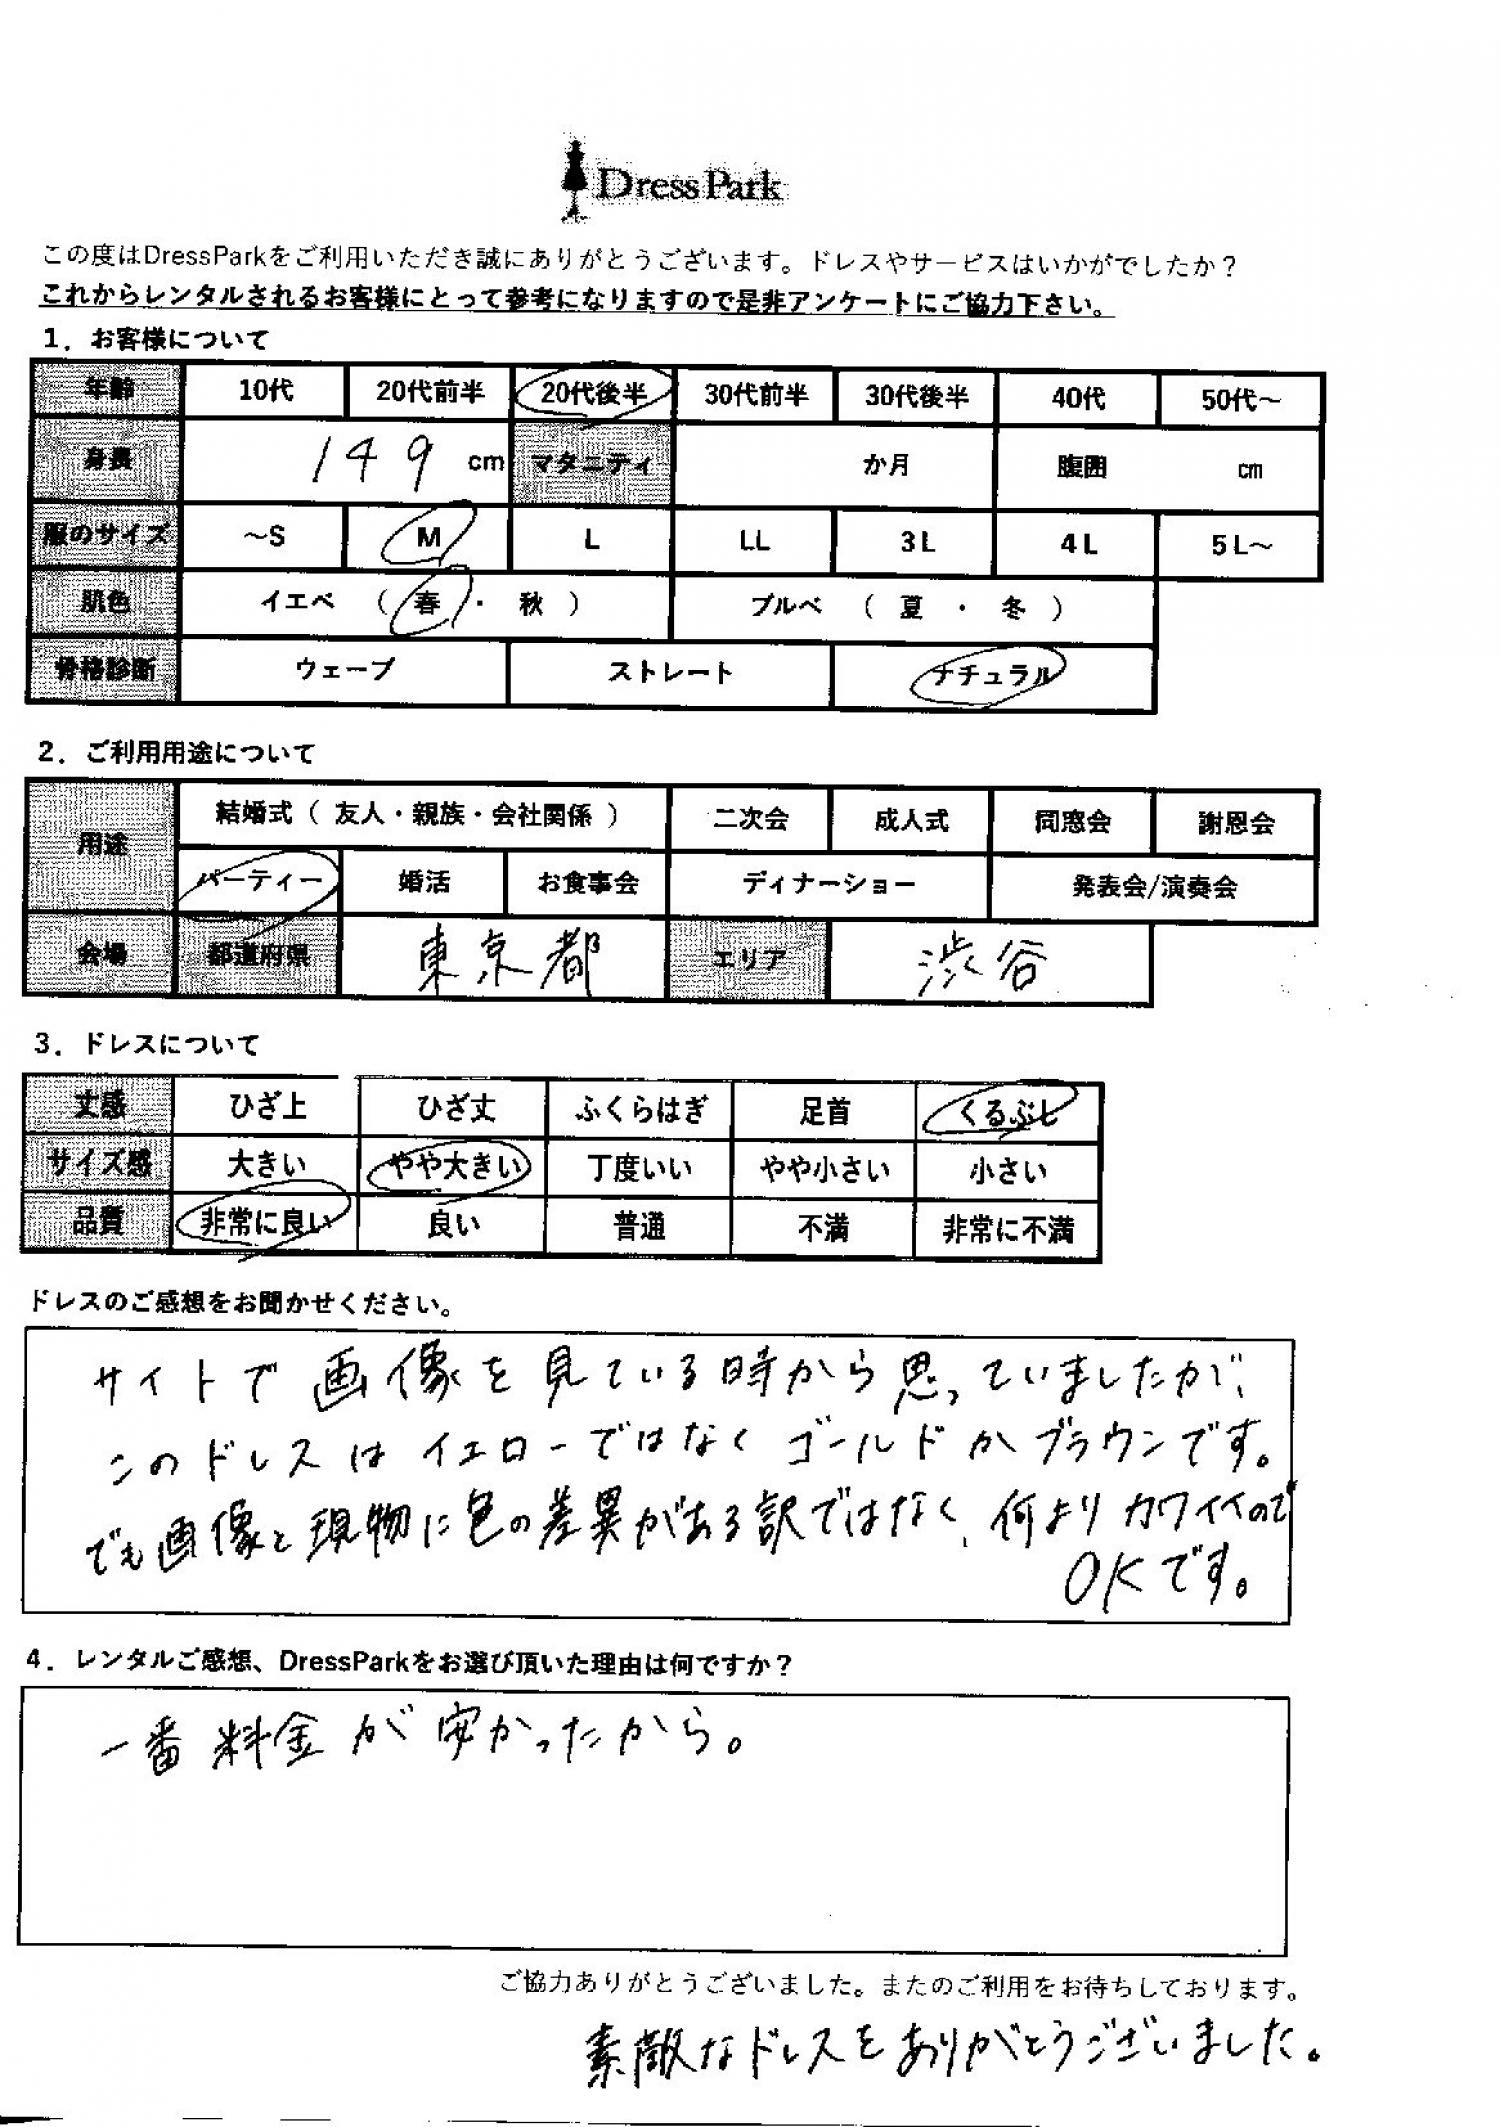 DressPark
この度はDressParkをご利用いただき誠にありがとうございます。ドレスやサービスはいかがでしたか？
これからレンタルされるお客様にとって参考になりますので是非アンケートにご協力下さい。
1．お客様について
年齢 10代 20代前半 20代後半 30代前半 30代後半 40代 50代～
身長 149 cm マタニティ か月 腹囲 cm
服のサイズ ～S M L LL 3L 4L 5L～
肌色 イエベ （ 春 ・ 秋 ） ブルベ （ 夏 ・ 冬 ）
骨格診断 ウェーブ ストレート ナチュラル
2．ご利用用途について
用途 結婚式（ 友人・親族・会社関係 ） 二次会 成人式 同窓会 謝恩会
パーティー 婚活 お食事会 ディナーショー 発表会/演奏会
会場 都道府県 東京都 エリア 渋谷
3．ドレスについて
丈感 ひざ上 ひざ丈 ふくらはぎ 足首 くるぶし
サイズ感 大きい やや大きい 丁度いい やや小さい 小さい
品質 非常に良い 良い 普通 不満 非常に不満
ドレスのご感想をお聞かせください。
サイトで画像を見ている時から思っていましたが、
このドレスはイエローではなくゴールドかブラウンです。
でも画像と現物に色の差異がある訳ではなく、何よりカワイイので
OKです。
4．レンタルご感想、DressParkをお選び頂いた理由は何ですか？
一番料金が安かったから。
ご協力ありがとうございました。またのご利用をお待ちしております。
素敵なドレスをありがとうございました。